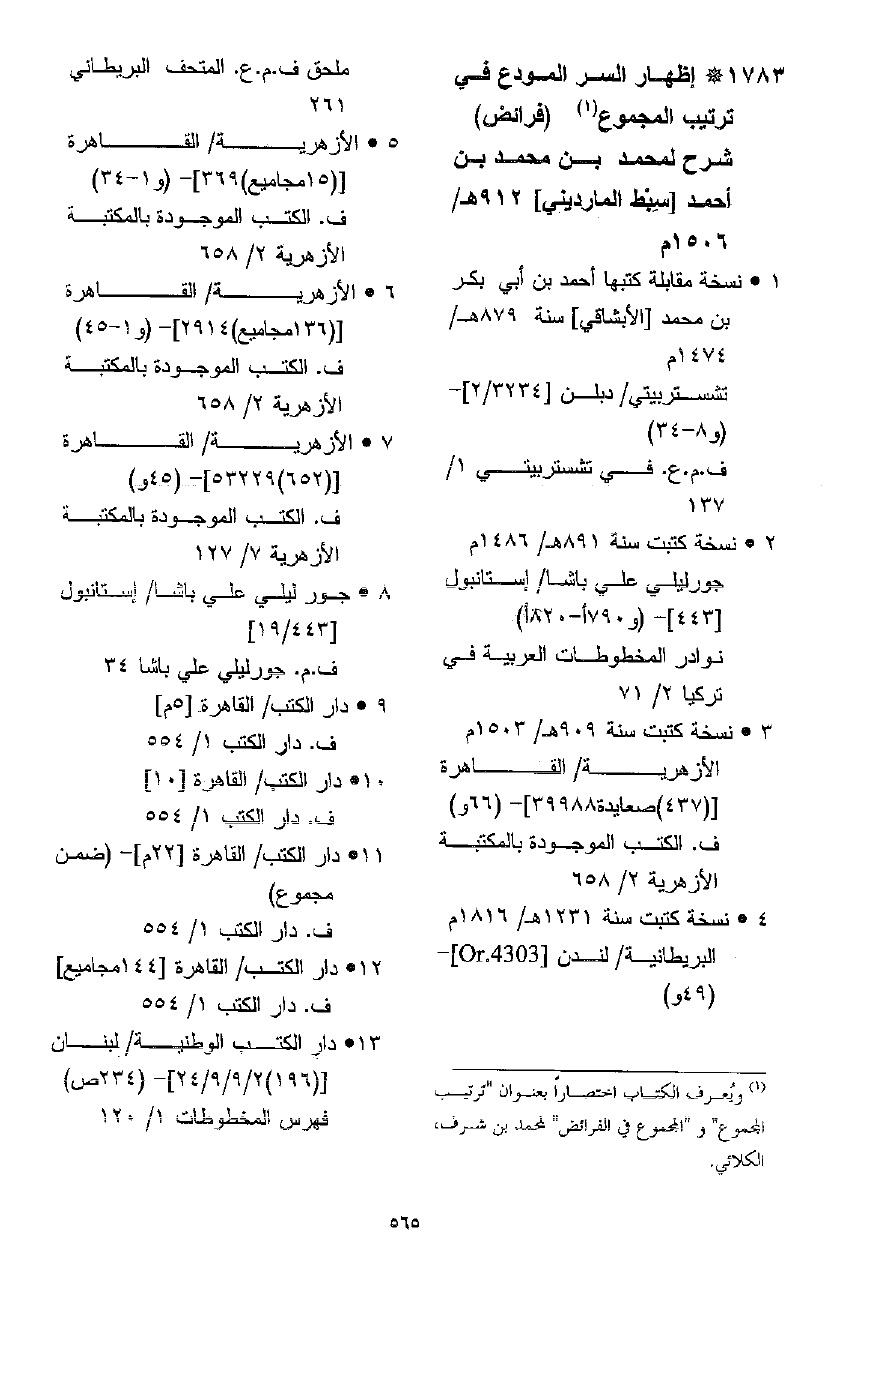 ١٧٨٣ * إظهار السر المودع في
ترتيب المجموع(١) (فرائض)
شرح لمحمد بن محمد بن
أحمد [سِبْط المارديني] ٩١٢هـ/
١٥٠٦م
١ • نسخة مقابلة كتبها أحمد بن أبي بكر
بن محمد [الأبشاقي] سنة ٨٧٩هـ/
١٤٧٤م
تشستربيتي/ دبلن [٢/٣٢٣٤]-
(و٨-٣٤)
ف.م.ع. في تشستربيتي ١/
١٣٧
٢ • نسخة كتبت سنة ٨٩١هـ/ ١٤٨٦م
جورليلي علي باشا/ إستانبول
[٤٤٣]- (و٧٩٠أ-٨٢٠أ)
نوادر المخطوطات العربية في
تركيا ٢/ ٧١
٣ • نسخة كتبت سنة ٩٠٩هـ/ ١٥٠٣م
الأزهرية/ القاهرة
[(٤٣٧)صعايدة٣٩٩٨٨]- (٦٦و)
ف. الكتب الموجودة بالمكتبة
الأزهرية ٢/ ٦٥٨
٤ • نسخة كتبت سنة ١٢٣١هـ/ ١٨١٦م
البريطانية/ لندن [Or.4303]-
(٤٩و)
(١) ويُعرف الكتاب اختصاراً بعنوان "ترتيب
المجموع" و "المجموع في الفرائض" لمحمد بن شرف،
الكلائي.
ملحق ف.م.ع. المتحف البريطاني
٢٦١
٥ • الأزهرية/ القاهرة
[(١٥مجاميع)٣٦٩]- (و١-٣٤)
ف. الكتب الموجودة بالمكتبة
الأزهرية ٢/ ٦٥٨
٦ • الأزهرية/ القاهرة
[(١٣٦مجاميع)٢٩١٤]- (و١-٤٥)
ف. الكتب الموجودة بالمكتبة
الأزهرية ٢/ ٦٥٨
٧ • الأزهرية/ القاهرة
[(٦٥٢)٥٣٢٢٩]- (٤٥و)
ف. الكتب الموجودة بالمكتبة
الأزهرية ٧/ ١٢٧
٨ • جور ليلي علي باشا/ إستانبول
[١٩/٤٤٣]
ف.م. جورليلي علي باشا ٣٤
٩ • دار الكتب/ القاهرة [٥م]
ف. دار الكتب ١/ ٥٥٤
١٠• دار الكتب/ القاهرة [١٠]
ف. دار الكتب ١/ ٥٥٤
١١• دار الكتب/ القاهرة [٢٢م]- (ضمن
مجموع)
ف. دار الكتب ١/ ٥٥٤
١٢• دار الكتب/ القاهرة [١٤٤مجاميع]
ف. دار الكتب ١/ ٥٥٤
١٣• دار الكتب الوطنية/ لبنان
[(١٩٦)٢٤/٩/٩/٢]- (٢٣٤ص)
فهرس المخطوطات ١/ ١٢٠
٥٦٥